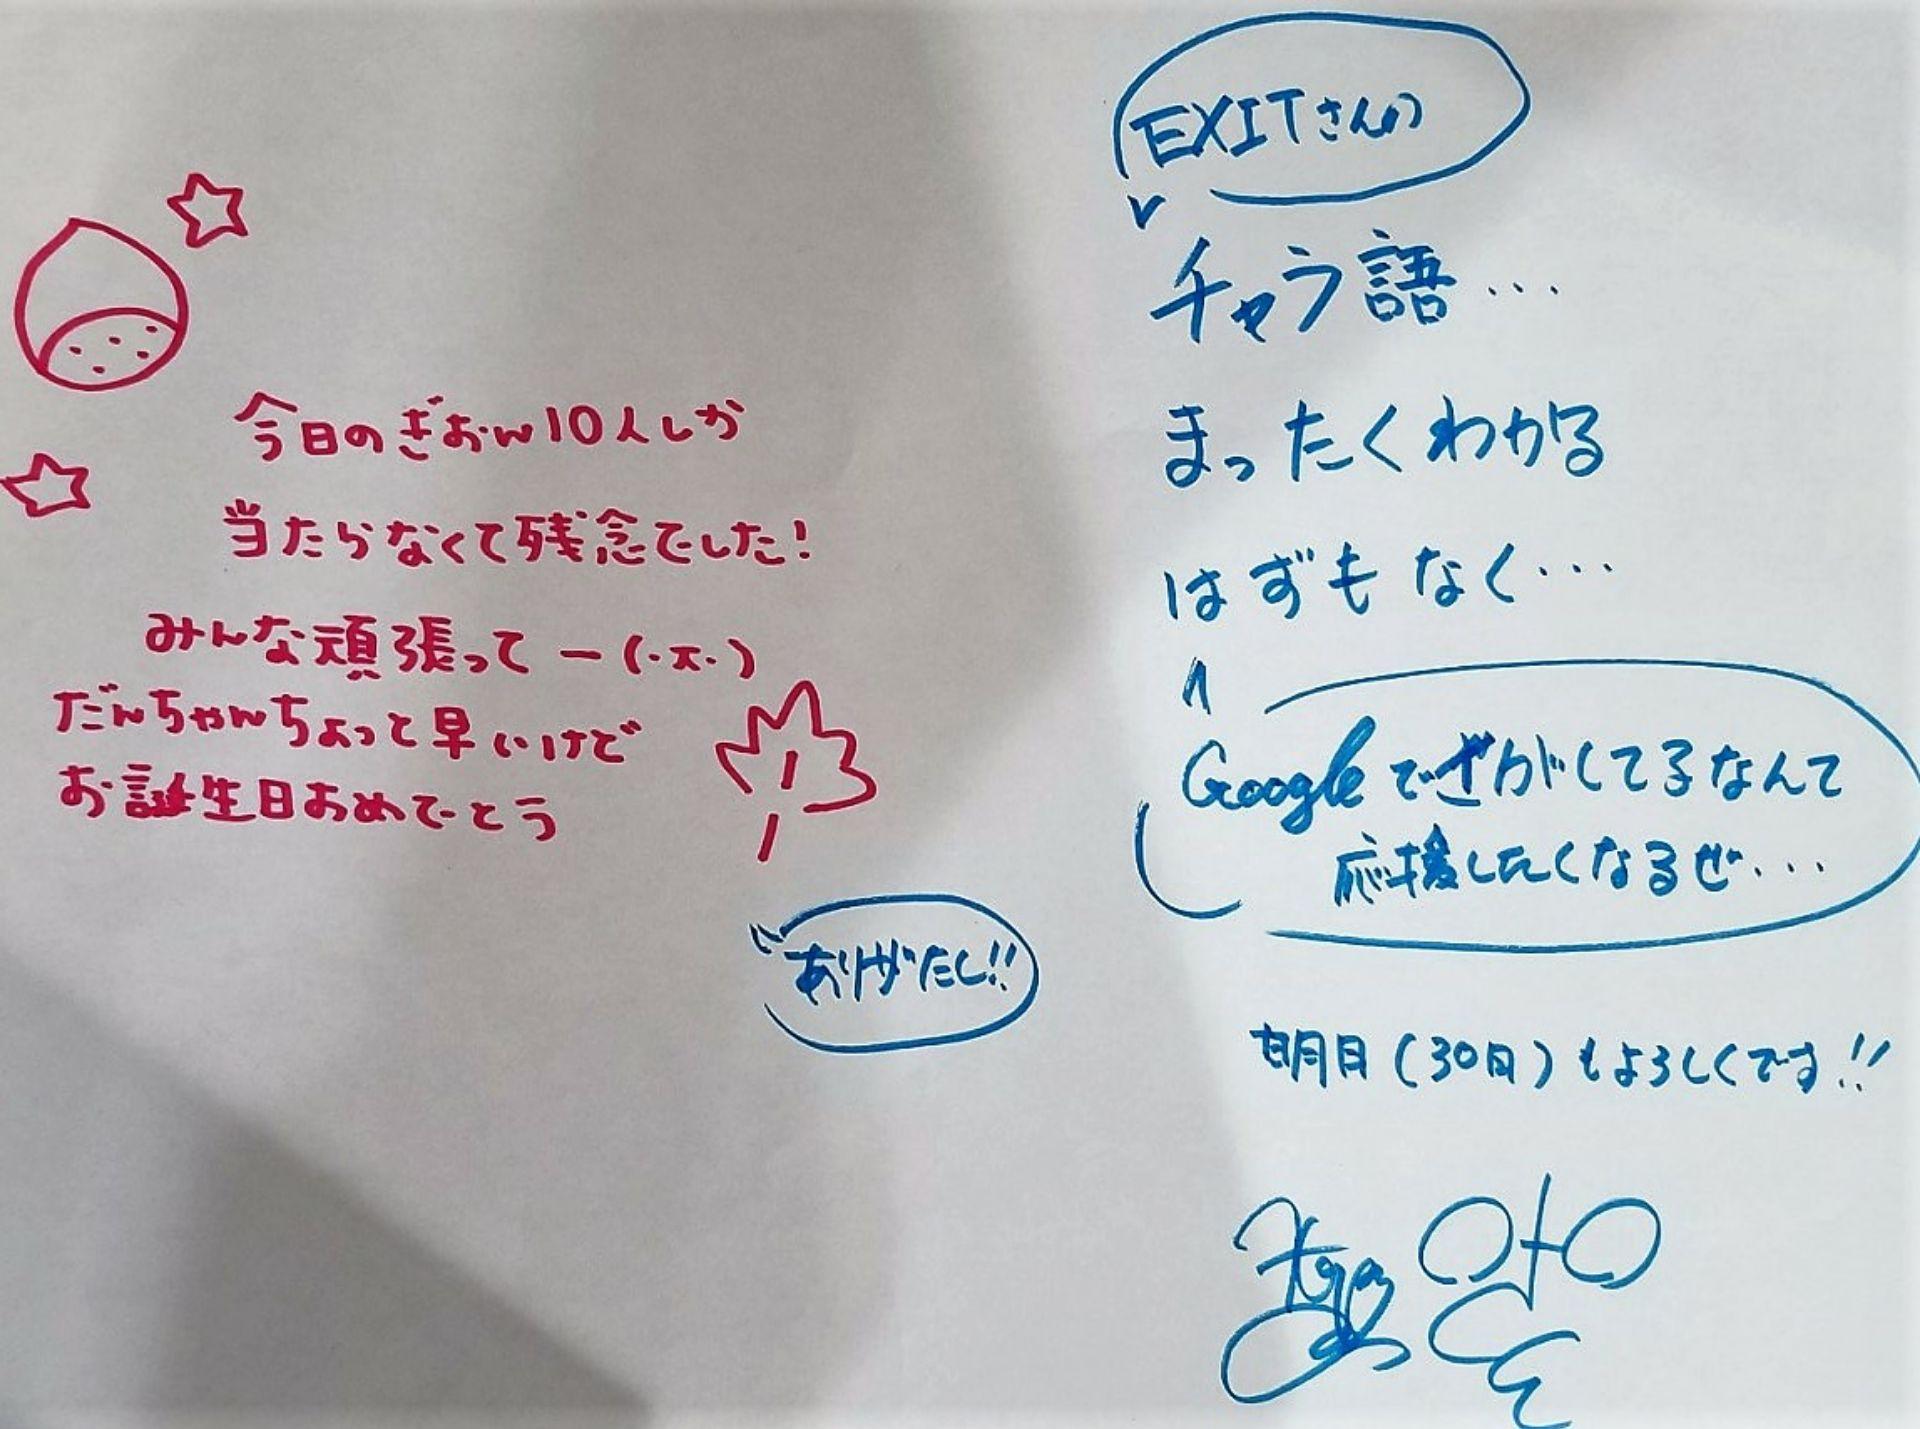 今日のぎおん10人しか
当たらなくて残念でした!
みんな頑張ってー(・ㅠ・)
だんちゃんちょっと早いけど
お誕生日おめでとう
ありがたし!!
EXITさんの
チャラ語…
まったくわかる
はずもなく…
Googleでさがしてるなんて
応援したくなるぜ…
明日(30日)もよろしくです!!